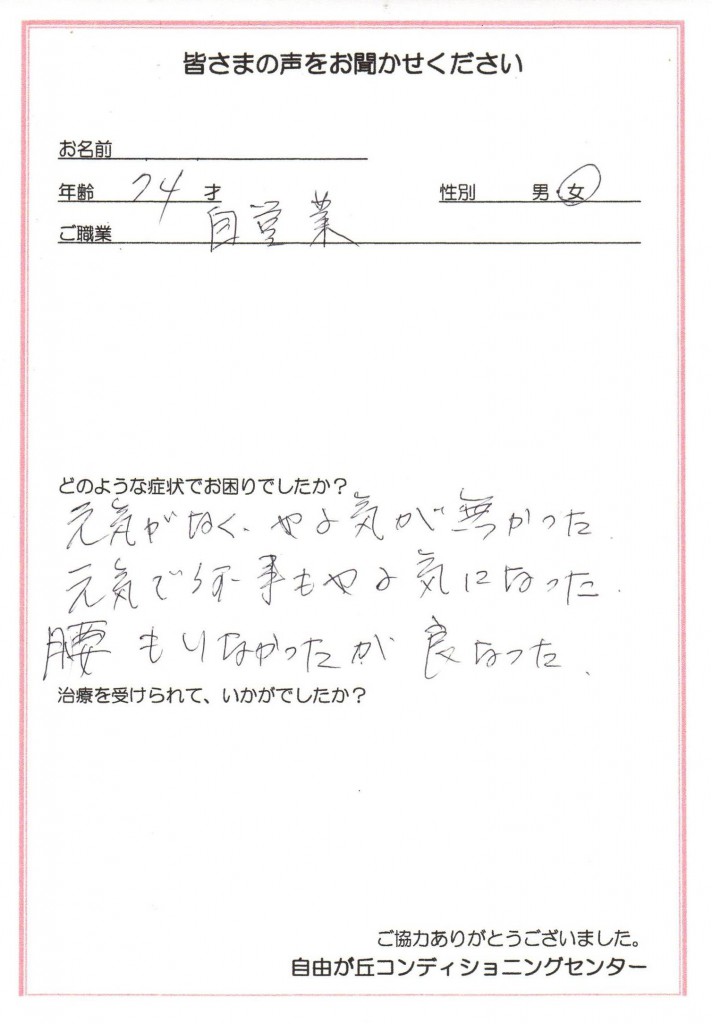 皆さまの声をお聞かせください
お名前
年齢 74 才 性別 男・女
ご職業 自営業
どのような症状でお困りでしたか？
元気がなく、やる気が無かった.
元気で何事もやる気になった.
腰もりなかったが良なった.
治療を受けられて、いかがでしたか？
ご協力ありがとうございました。
自由が丘コンディショニングセンター